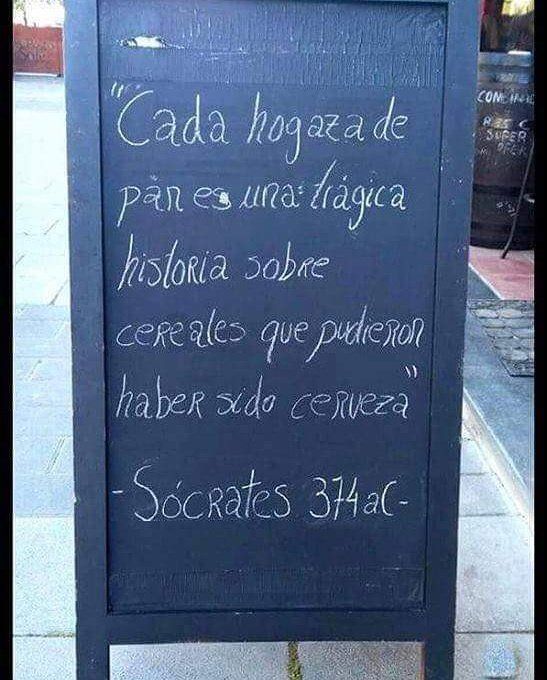 "Cada hogaza de
pan es una trágica
historia sobre
cereales que pudieron
haber sido cerveza"
- Sócrates 374 aC -
SUPER